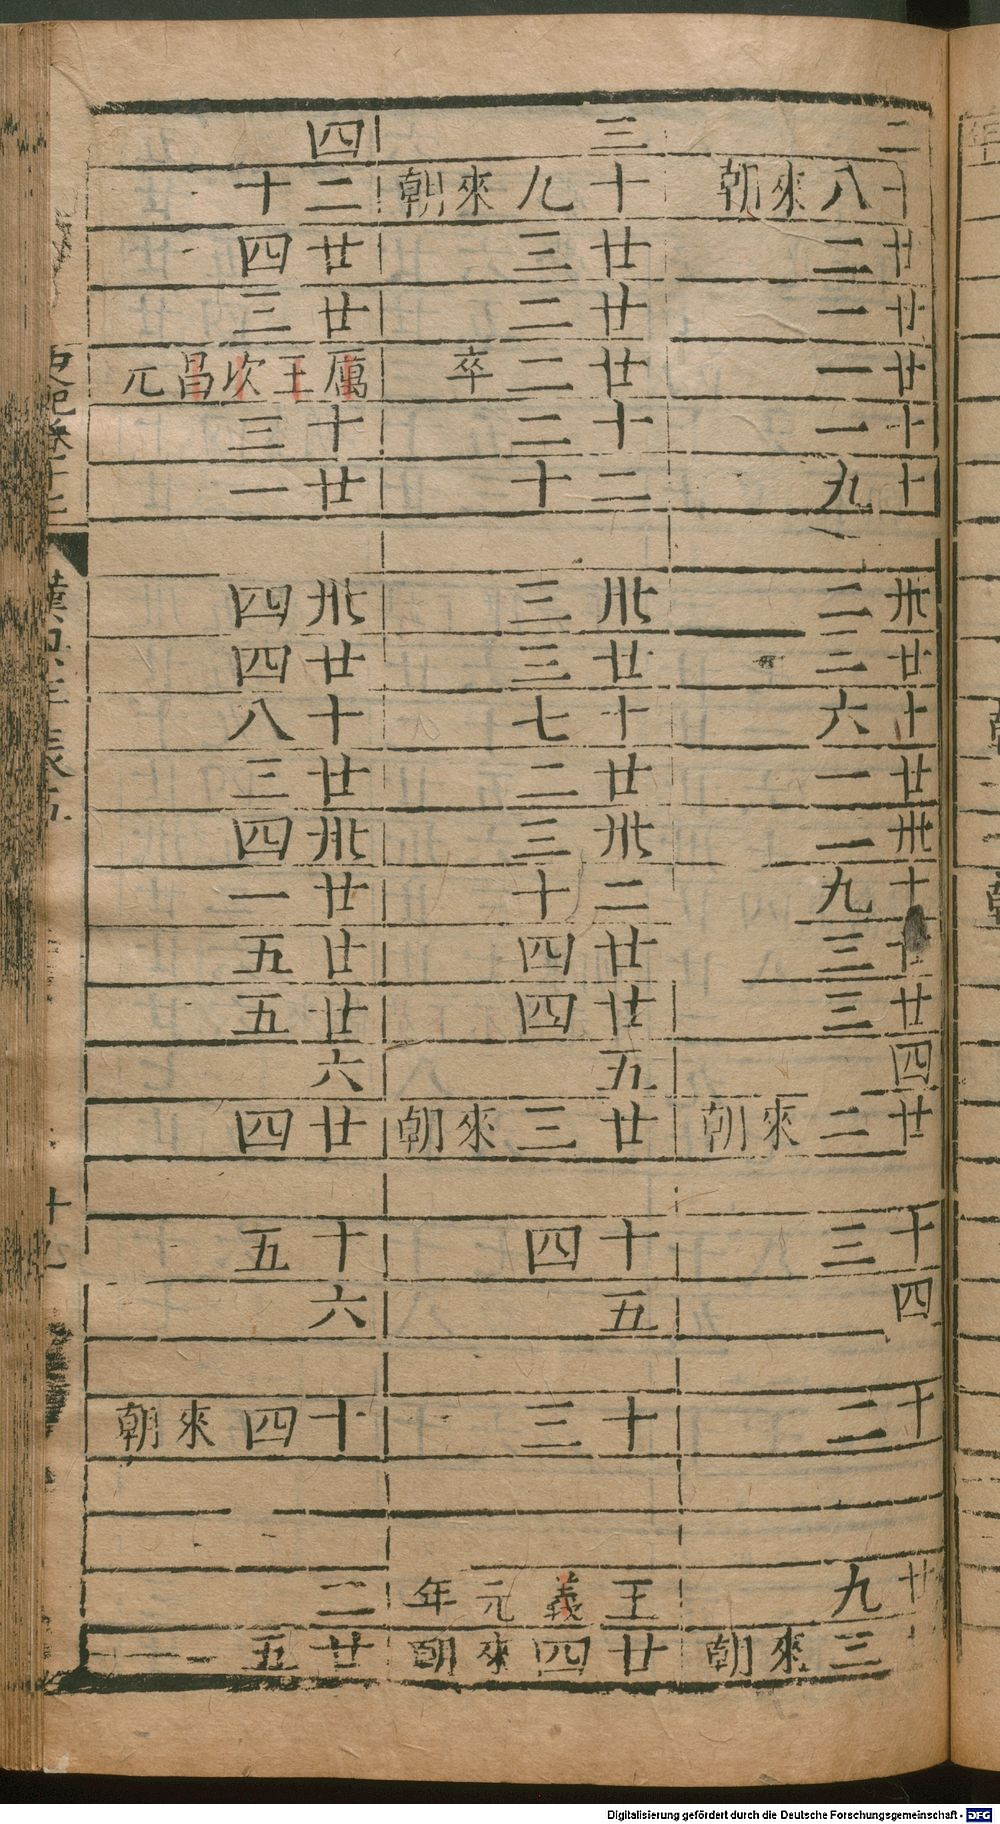 二
十八來朝
廿二
廿一
廿一
十一
十九
卅二
廿三
十六
廿一
卅二
十九
廿三
廿三
四
廿二來朝
十三
四
十二
廿九
三來朝
三
十九來朝
廿三
廿二
廿二卒
十二
二十
卅三
廿三
十七
廿二
卅三
二十
廿四
廿四
五
廿三來朝
十四
五
十三
王義元年
廿四來朝
四
二十
廿四
廿三
厲王次昌元
十三
廿一
卅四
廿四
十八
廿三
卅四
廿一
廿五
廿五
六
廿四
十五
六
十四來朝
二
廿五
Digitalisierung gefördert durch die Deutsche Forschungsgemeinschaft - DFG